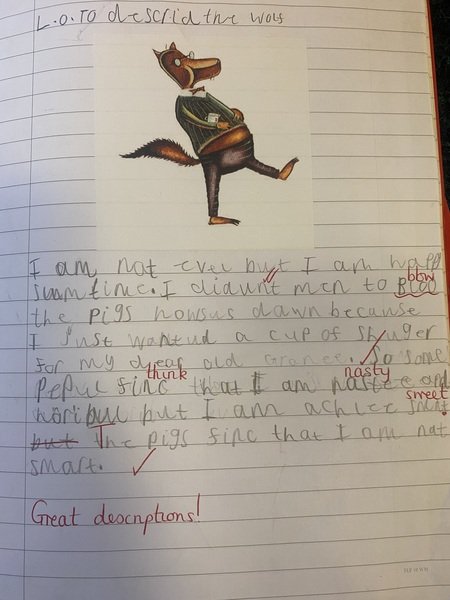 L.O. To describ the wolf
I am not ever but I am happ
sumtime. I didunt men to Bloo
blow
the pigs howsus dawn because
I just wantud a cup of shuger
for my dear old grance. So some
think nasty
pepul finc that I am nastee and
sweet
horibul but I am achlee smat.
but The pigs finc that I am not
smart.
Great descriptions!